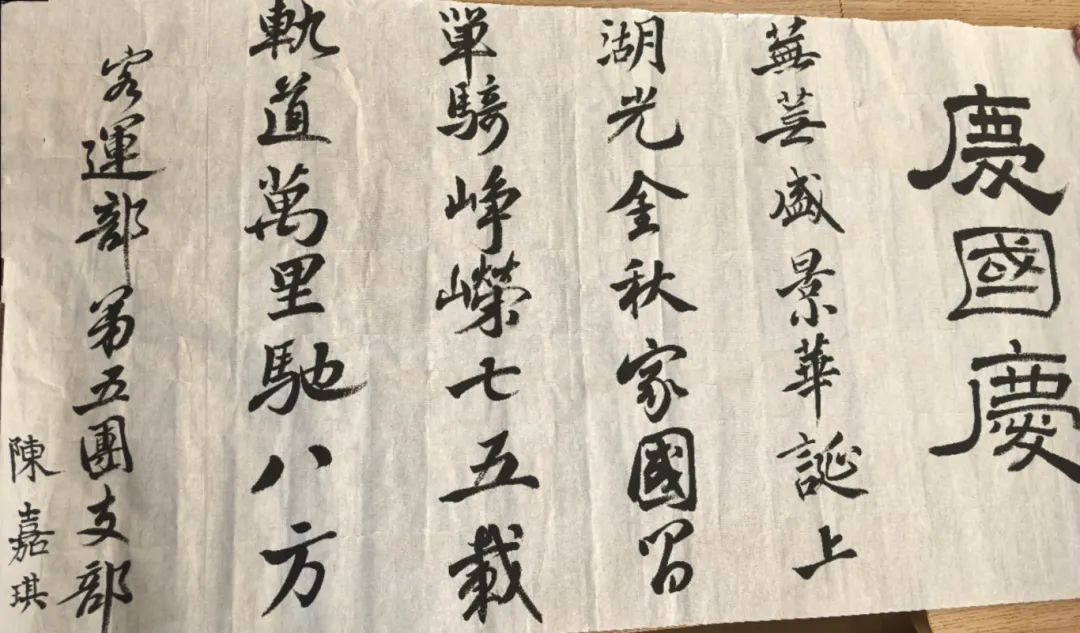 慶國慶
蕪芸盛景華誕上
湖光金秋家國昌
單騎崢嶸七五載
軌道萬里馳八方
客運部第五團支部
陳嘉琪